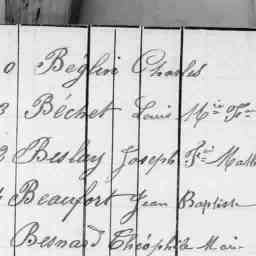 0 Béglin Charles
3 Béchet Louis M
2 Beslay Joseph F
Beaufort Jean Baptiste
Besnard Théophile Marie